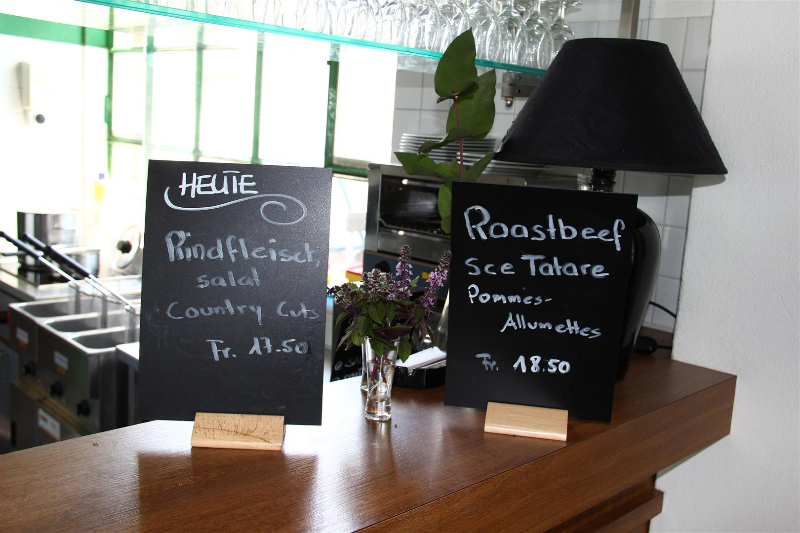 HEUTE
Rindfleisch,
salat
Country Cuts
Fr. 17.50
Roastbeef
sce Tatare
Pommes-
Allumettes
Fr. 18.50